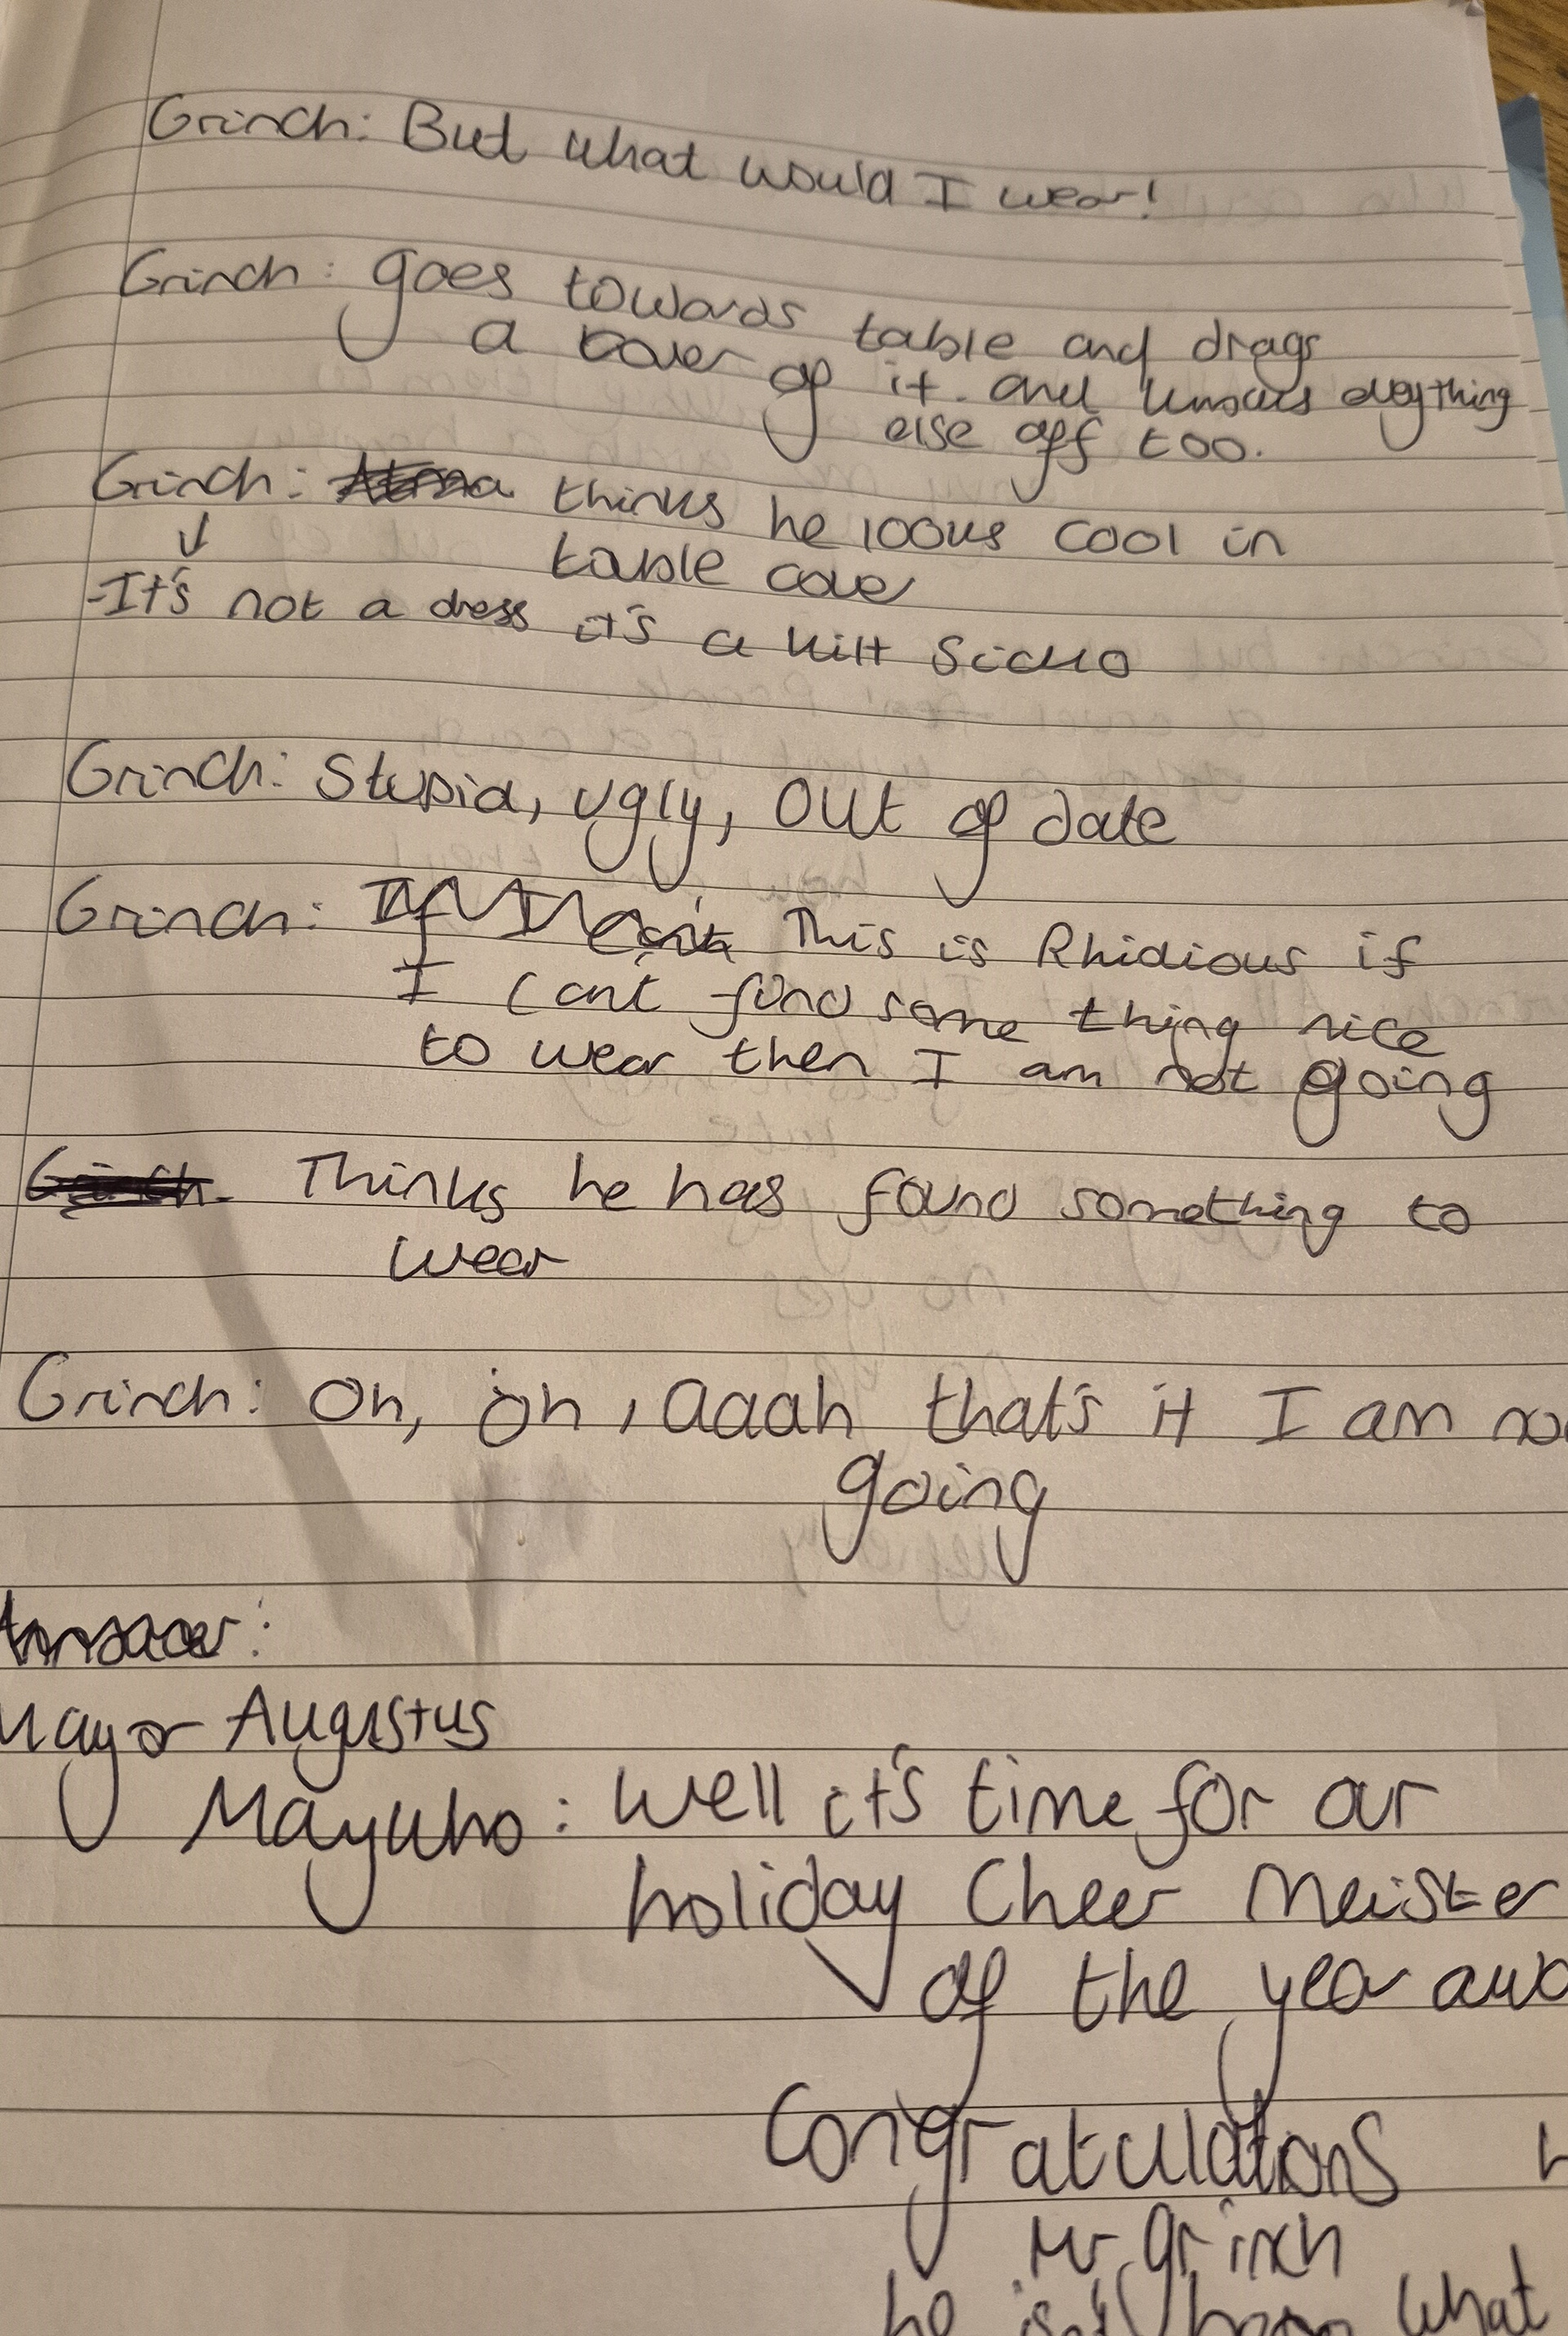 Grinch: But what would I wear!
Grinch: goes towards table and drags
a cover of it. and knocks everything
else off too.
Grinch: thinks he looks cool in
table cover
-It's not a dress it's a kilt Sicko
Grinch: Stupid, ugly, out of date
Grinch: This is Rhidious if
I Can't find some thing nice
to wear then I am not going
Thinks he has found something to
wear
Grinch: Oh, oh, aaah that's it I am
going
Mayor Augustus
Maywho: Well it's time for our
holiday Cheer Meister
of the year
Congratulations
Mr grinch
he isn't what